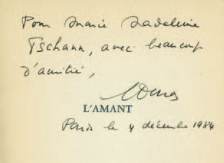 Pour Marie Madeleine
Tschann, avec beaucoup
d'amitié,
L'AMANT
Paris le 4 décembre 1984